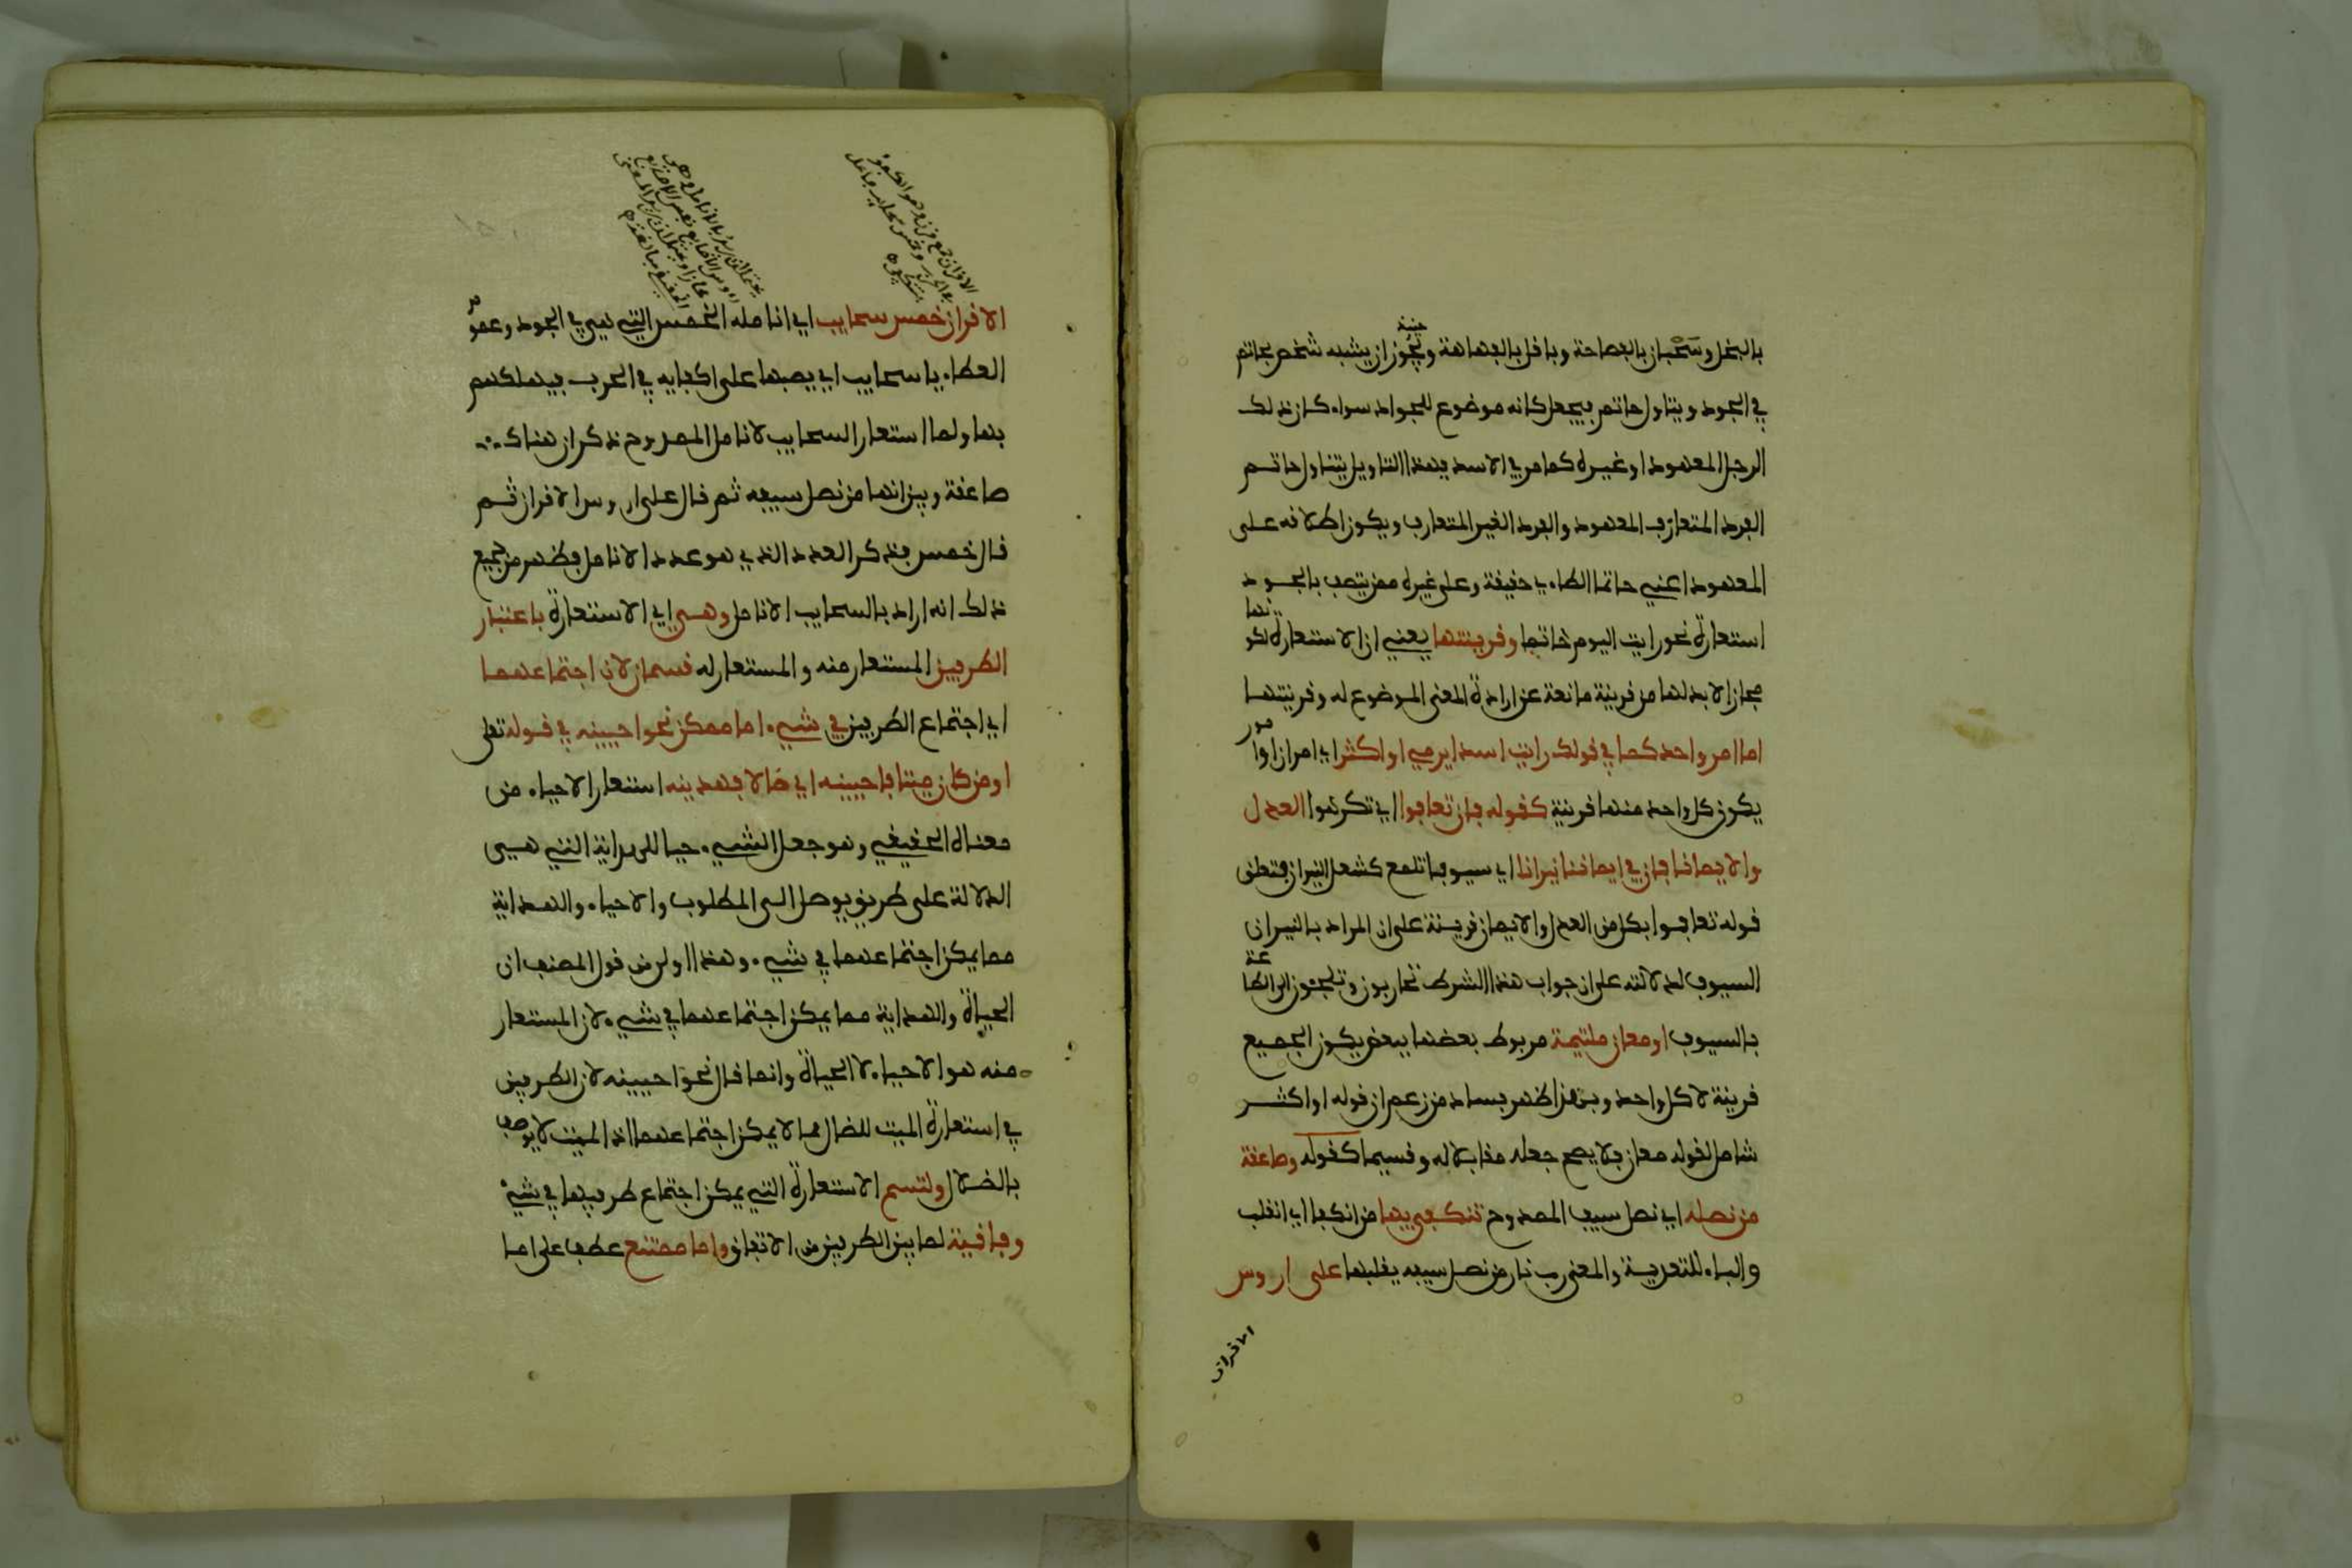 بالبخل وسحبان بالفصاحة وباقل بالفهاهة وحينئذ يجوز ان يشبه شخص بحاتم
في الجود ويتاول حاتم فيجعل كانه موضوع للجواد سواء كان ذلك
الرجل المعهود او غيره كما مر في الاسد فبهذا التاويل يتناول حاتم
الفرد المتعارف المعهود والفرد الغير المتعارف ويكون اطلاقه على
المعهود اعني حاتما الطاءي حقيقة وعلى غيره ممن يتصف بالجود
استعارة نحو رايت اليوم حاتما وقرينتها يعني ان الاستعارة لكونها
مجازا لا بد لها من قرينة مانعة عن ارادة المعنى الموضوع له وقرينتها
اما امر واحد كما في قولك رايت اسدا يرمي او اكثر اي امران او امور
يكون كل واحد منها قرينة كقوله فان تعافوا اي تكرهوا العدل
والايمانا فان في ايماننا نيرانا اي سيوفا تلمع كشعل النيران فتعلق
قوله تعافوا بكل من العدل والايمان قرينة على ان المراد بالنيران
السيوف لدلالته على ان جواب هذا الشرط تحاربون وتلجؤن الى الطاعة
بالسيوف او معان ملتيمة مربوط بعضها ببعض يكون الجميع
قرينة لا كل واحد وبهذا ظهر فساد من زعم ان قوله او اكثر
شامل لقوله معان فلا يصح جعله مقابلا له وقسيما كقوله وصاعقة
من نصله اي نصل سيف الممدوح تنكفي بها من انكفا اي انقلب
والباء للتعدية والمعنى رب نار من نصل سيفه يقلبها على ارؤس
الاقران
الاقران خمس سحايب اي انامله الخمس التي هي في الجود وعموم
العطاءيا سحايب اي يصبها على اكفايه في الحرب فيهلكهم
بها ولما استعار السحايب لانامل الممدوح ذكر ان هناك
صاعقة وبين انها من نصل سيفه ثم قال على ارؤس الاقران ثم
قال خمس فذكر العدد الذي هو عدد الانامل فظهر من جميع
ذلك انه اراد بالسحايب الانامل وهي اي الاستعارة باعتبار
الطرفين المستعار منه والمستعار له قسمان لان اجتماعهما
اي اجتماع الطرفين في شيء اما ممكن نحو احيينه في قوله تعلى
او من كان ميتا فاحيينه اي ضالا فهدينه استعار الاحياء من
معناه الحقيقي وهو جعل الشيء حيا للهداية التي هي
الدلالة على طريق يوصل الى المطلوب والاحياء والهداية
مما يمكن اجتماعهما في شيء وهذا اولى من قول المصنف ان
الحياة والهداية مما يمكن اجتماعهما في شيء لان المستعار
منه هو الاحياء لا الحياة وانما قال نحو احيينه لان الطرفين
في استعارة الميت للضال مما لا يمكن اجتماعهما اذ الميت لا يوصف
بالضلال ولتسم الاستعارة التي يمكن اجتماع طرفيها في شيء
وفاقية لما بين الطرفين من الاتفاق واما ممتنع عطف على اما